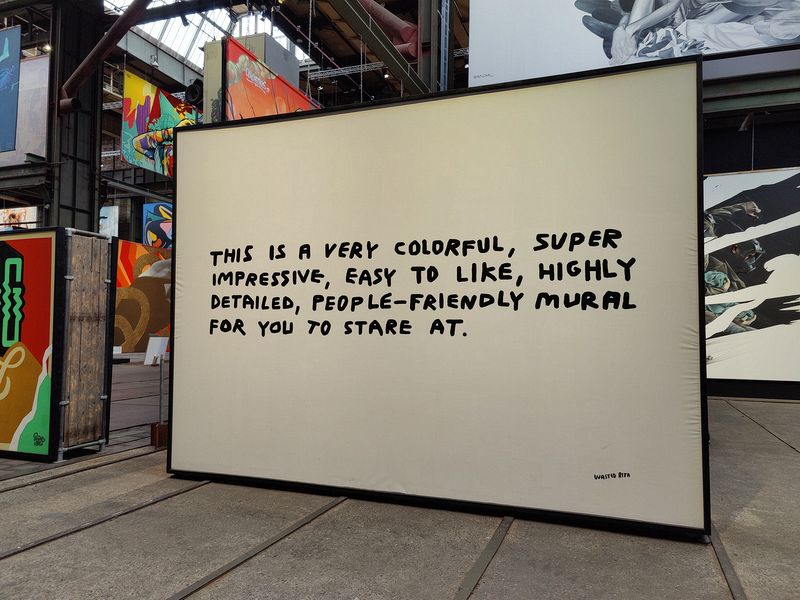 THIS IS A VERY COLORFUL, SUPER
IMPRESSIVE, EASY TO LIKE, HIGHLY
DETAILED, PEOPLE-FRIENDLY MURAL
FOR YOU TO STARE AT.
WASTED RITA